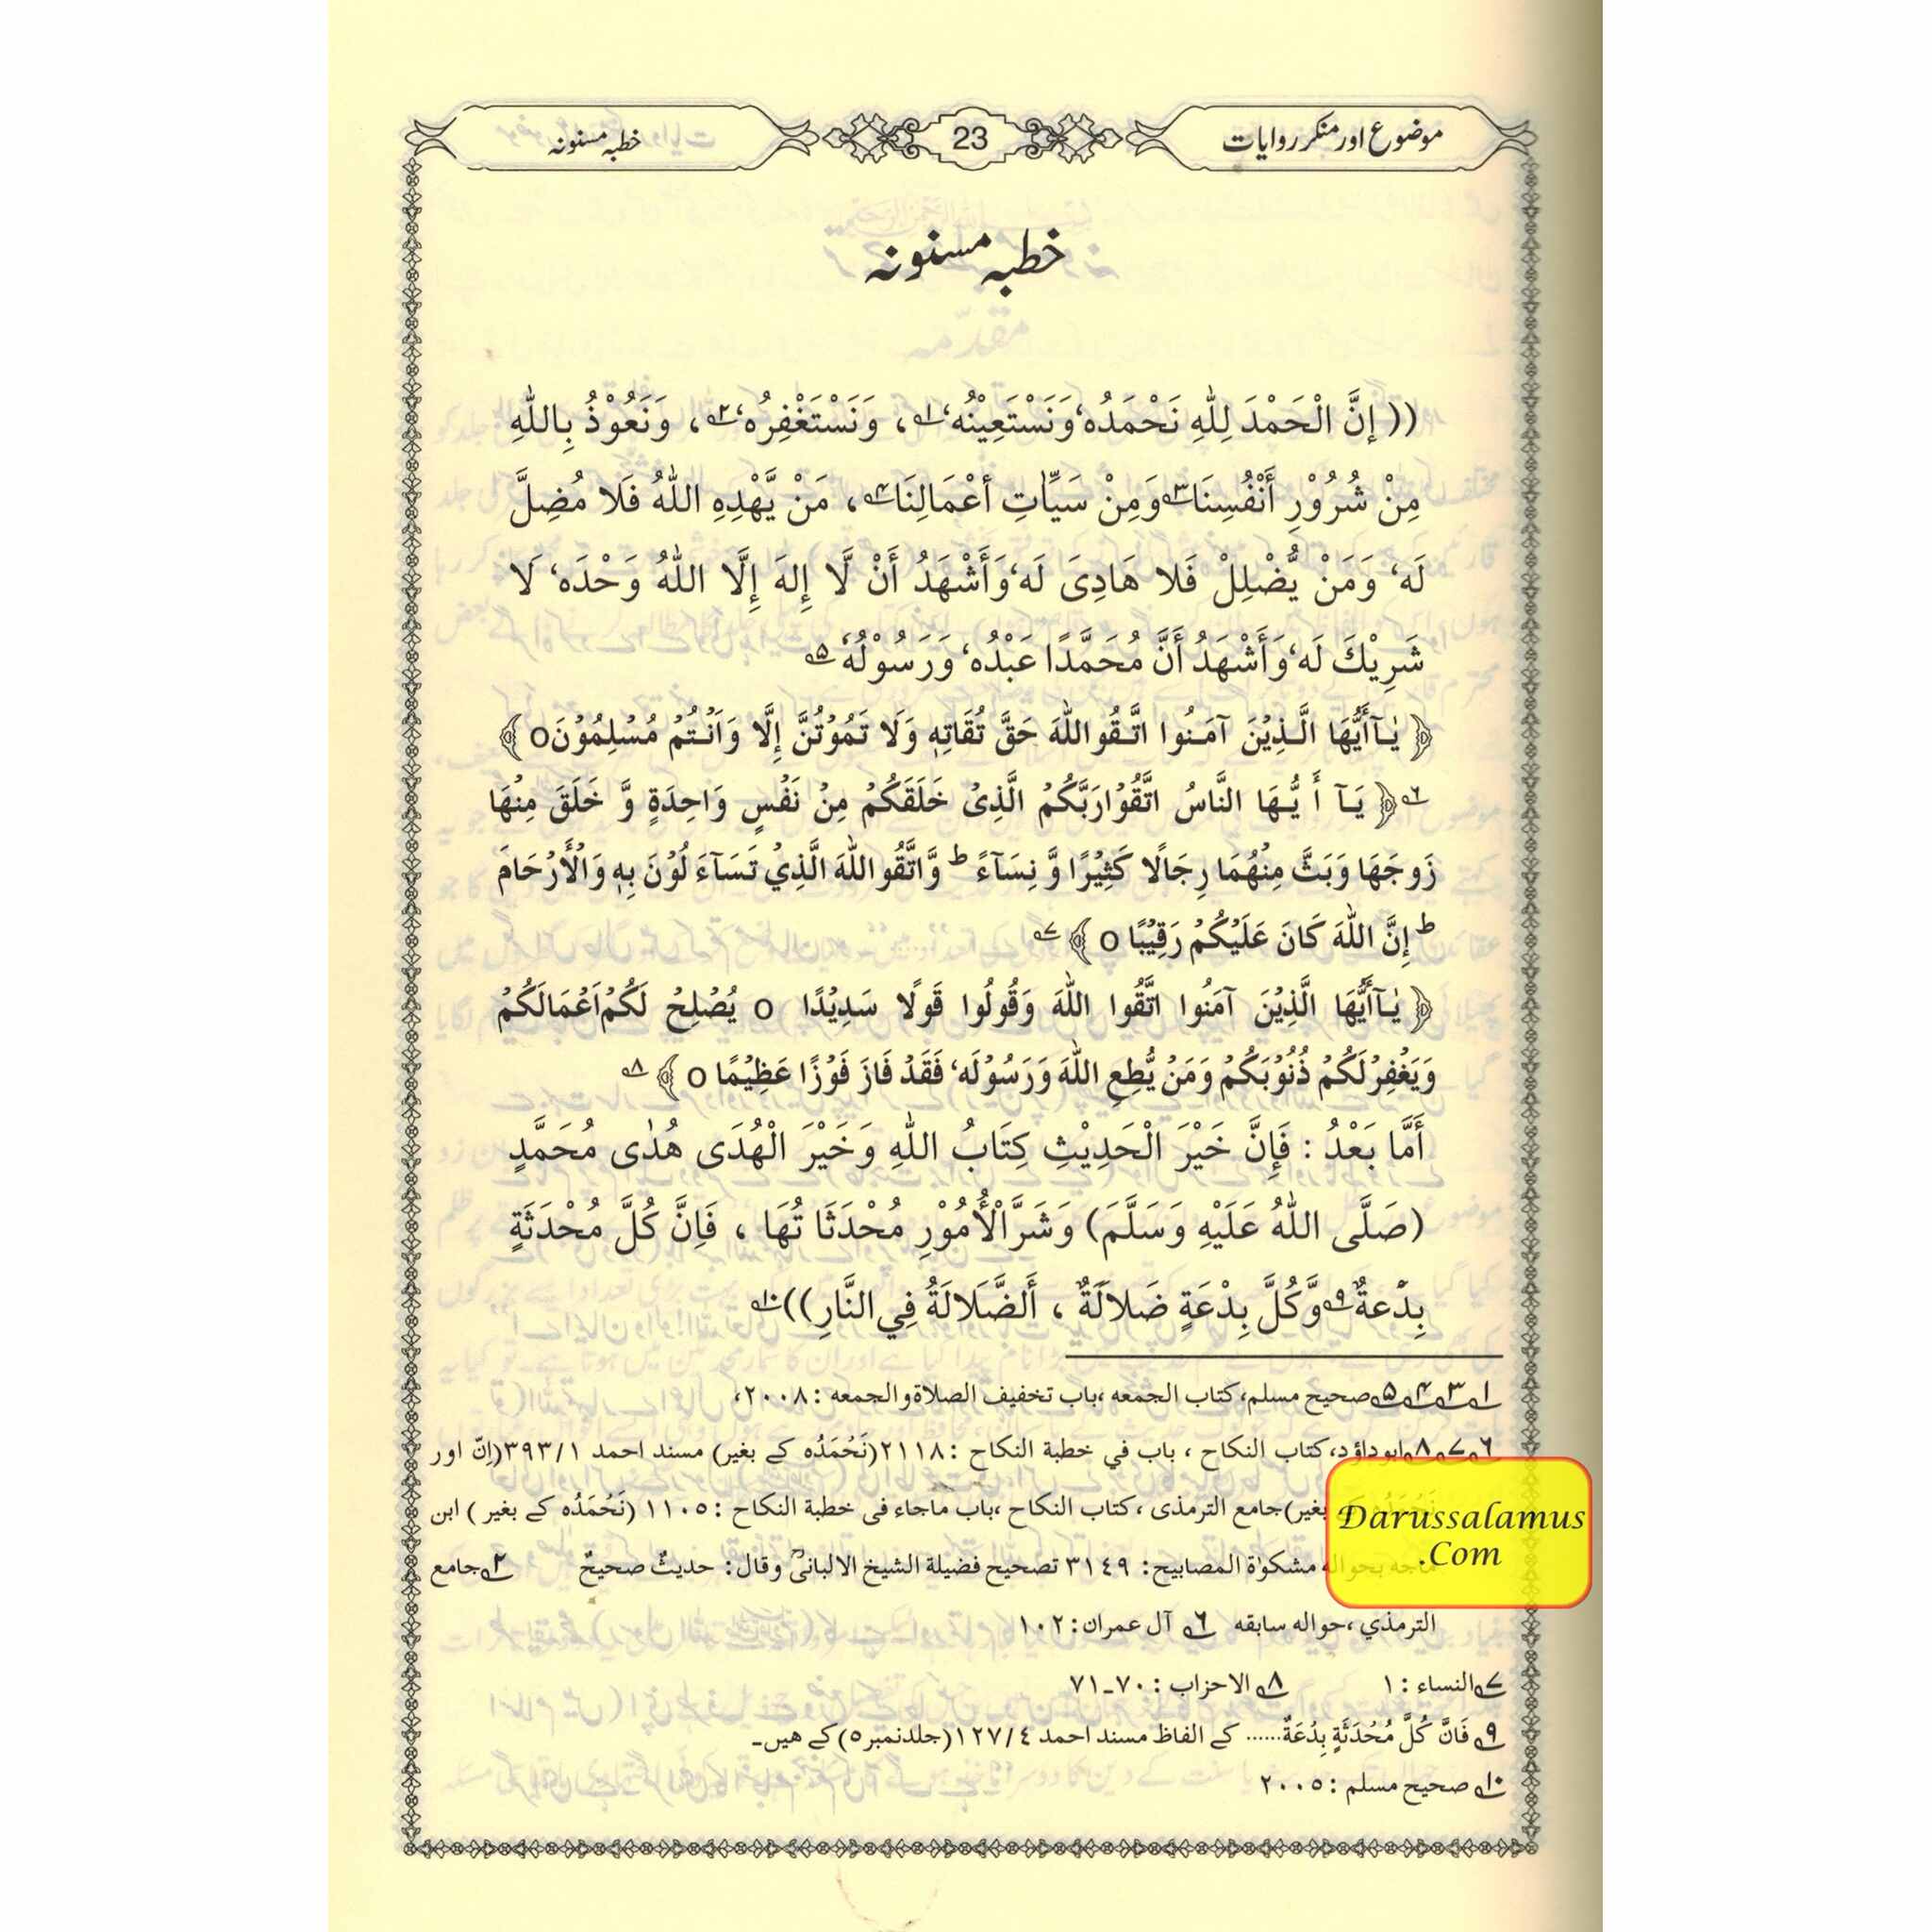 موضوع اور منکر روایات
23
خطبہ مسنونہ
خطبہ مسنونہ
(( إِنَّ الْحَمْدَ لِلّٰهِ نَحْمَدُه‘ وَنَسْتَعِيْنُه‘ ۱؎ ، وَنَسْتَغْفِرُه‘ ۲؎ ، وَنَعُوْذُ بِاللّٰهِ
مِنْ شُرُوْرِ أَنْفُسِنَا ۳؎ وَمِنْ سَيِّاٰتِ أعْمَالِنَا ۴؎ ، مَنْ يَّهْدِهِ اللّٰهُ فَلا مُضِلَّ
لَه‘ وَمَنْ يُّضْلِلْ فَلا هَادِىَ لَه‘ وَأَشْهَدُ أَنْ لَّا إِلهَ إِلَّا اللّٰهُ وَحْدَه‘ لَا
شَرِيْكَ لَه‘ وَأَشْهَدُ أَنَّ مُحَمَّدًا عَبْدُه‘ وَرَسُوْلُهٗ ۵؎
﴿ يٰـآأَيُّهَا الَّـذِيْنَ آمَـنُوا اتَّـقُو اللّٰهَ حَقَّ تُقَاتِهٖ وَلَا تَمُوْتُنَّ إِلَّا وَاَنْـتُمْ مُسْلِمُوْنَ o ﴾
۶؎ ﴿ يَـآ أَ يُّـهَا النَّاسُ اتَّقُوْا رَبَّكُمْ الَّذِىْ خَلَقَكُمْ مِنْ نَفْسٍ وَاحِدَةٍ وَّ خَلَقَ مِنْهَا
زَوجَهَا وَبَثَّ مِنْهُمَا رِجَالًا كَثِيْرًا وَّ نِسَآءً ط وَّاتَّقُو اللّٰهَ الَّذِيْ تَسَآءَ لُوْنَ بِهٖ وَالْأَرْحَامَ
ط إِنَّ اللّٰهَ كَانَ عَلَيْكُمْ رَقِيْبًا o ﴾ ۷؎
﴿ يٰـآأَيُّهَا الَّذِيْنَ آمَنُوا اتَّقُوا اللّٰهَ وَقُولُوا قَولًا سَدِيْدًا o يُصْلِحْ لَكُمْ اَعْمَالَكُمْ
وَيَغْفِرْلَكُمْ ذُنُوْبَكُمْ وَمَنْ يُّطِعِ اللّٰهَ وَرَسُوْلَه‘ فَقَدْ فَازَ فَوْزًا عَظِيْمًا o ﴾ ۸؎
أَمَّا بَعْدُ : فَإِنَّ خَيْرَ الْحَدِيْثِ كِتَابُ اللّٰهِ وَخَيْرَ الْهُدَى هُدٰى مُحَمَّدٍ
(صَلَّى اللّٰهُ عَلَيْهِ وَسَلَّمَ) وَشَرَّ الْأُمُوْرِ مُحْدَثَا تُهَا ، فَاِنَّ كُلَّ مُحْدَثَةٍ
بِدْعَةٌ ۹؎ وَّكُلَّ بِدْعَةٍ ضَلالَةٌ ، أَلضَّلَالَةُ فِي النَّارِ )) ۱۰؎
۱؎ ۳؎ ۴؎ ۵؎ صحیح مسلم، کتاب الجمعه ،باب تخفیف الصلاة و الجمعه :۲۰۰۸،
۶؎ ۷؎ ۸؎ ابو داؤد، کتاب النکاح ، باب في خطبة النکاح :۲۱۱۸ (نَحْمَدُه کے بغیر) مسند احمد ۱/۳۹۳ (اِنّ اور
نَحْمَدُه کے بغیر) جامع الترمذی ،کتاب النکاح ،باب ماجاء فی خطبة النکاح :۱۱۰۵ (نَحْمَدُه کے بغیر ) ابن
ماجه بحواله مشکوٰة المصابیح: ۳۱۴۹ تصحیح فضیلة الشیخ الالبانیؒ وقال: حدیثٌ صحیحٌ ۲؎ جامع
الترمذي ،حواله سابقه ۶؎ آل عمران: ۱۰۲
۷؎ النساء : ۱ ۸؎ الاحزاب : ۷۰۔۷۱
۹؎ فَانَّ كُلَّ مُحْدَثَةٍ بِدْعَةٌ...... کے الفاظ مسند احمد ۴/۱۲۷ (جلدنمبر ۵) کے هیں۔
۱۰؎ صحیح مسلم : ۲۰۰۵
Darussalamus
.Com